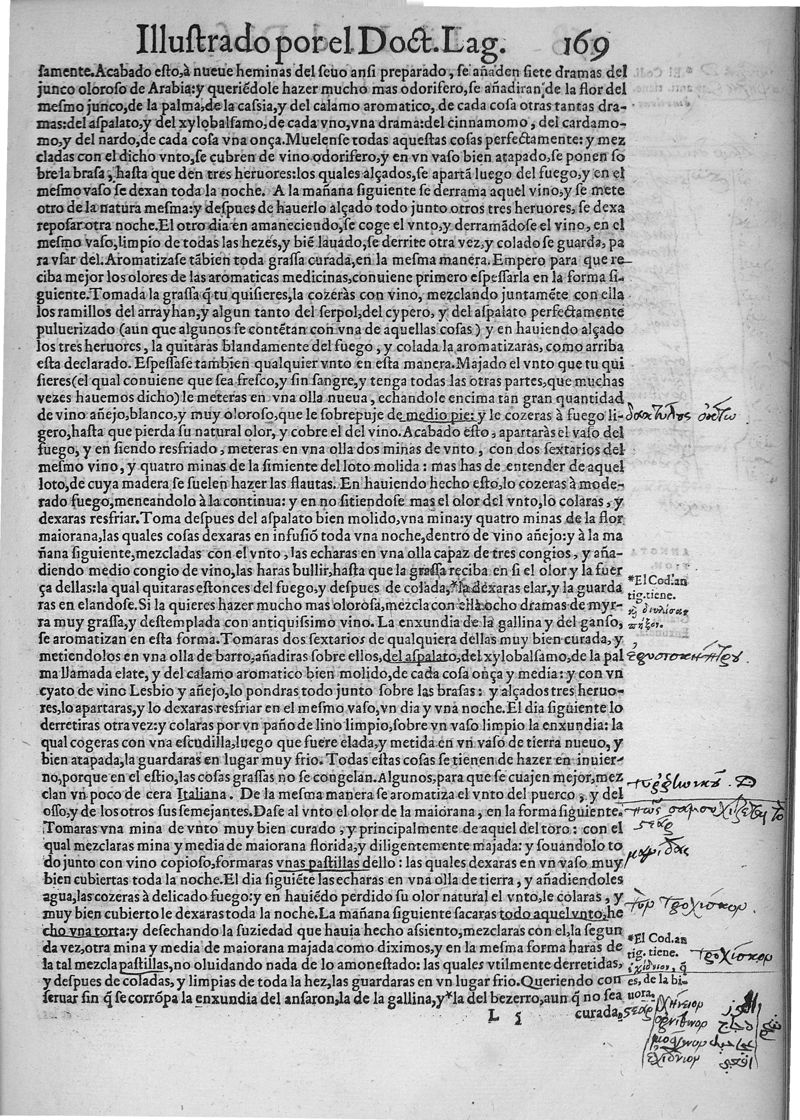 Illuſtrado por el Doct. Lag. 169
ſamente. Acabado eſto, à nueue heminas del ſeuo anſi preparado, ſe añaden ſiete dramas del
junco oloroſo de Arabia: y queriēdole hazer mucho mas odorifero, ſe añadiran, de la flor del
meſmo junco, de la palma, de la caſsia, y del calamo aromatico, de cada coſa otras tantas dra-
mas: del aſpalato, y del xylobalſamo, de cada vno, vna drama: del cinnamomo, del cardamo-
mo, y del nardo, de cada coſa vna onça. Muelenſe todas aqueſtas coſas perfectamente: y mez
cladas con el dicho vnto, ſe cubren de vino odorifero, y en vn vaſo bien atapado, ſe ponen ſo
bre la braſa, haſta que den tres heruores: los quales alçados, ſe apartā luego del fuego, y en el
meſmo vaſo ſe dexan toda la noche. A la mañana ſiguiente ſe derrama aquel vino, y ſe mete
otro de la natura meſma: y deſpues de hauerlo alçado todo junto otros tres heruores, ſe dexa
repoſar otra noche. El otro dia en amaneciendo, ſe coge el vnto, y derramādoſe el vino, en el
meſmo vaſo, limpio de todas las hezes, y biē lauado, ſe derrite otra vez, y colado ſe guarda, pa
ra vſar del. Aromatizaſe tābien toda graſſa curada, en la meſma manera. Empero para que re-
ciba mejor los olores de las aromaticas medicinas, conuiene primero eſpeſſarla en la forma ſi-
guiente. Tomada la graſſa q̃ tu quiſieres, la cozeràs con vino, mezclando juntamēte con ella
los ramillos del arrayhan, y algun tanto del ſerpol, del cypero, y del aſpalato perfectamente
puluerizado (aun que algunos ſe contētan con vna de aquellas coſas) y en hauiendo alçado
los tres heruores, la quitaras blandamente del fuego, y colada la aromatizaras, como arriba
eſta declarado. Eſpeſſaſe tambien qualquier vnto en eſta manera. Majado el vnto que tu qui
ſieres (el qual conuiene que ſea freſco, y ſin ſangre, y tenga todas las otras partes, que muchas
vezes hauemos dicho) le meteras en vna olla nueua, echandole encima tan gran quantidad
de vino añejo, blanco, y muy oloroſo, que le ſobrepuje de medio pie: y le cozeras à fuego li-
gero, haſta que pierda ſu natural olor, y cobre el del vino. Acabado eſto, apartaràs el vaſo del
fuego, y en ſiendo resfriado, meteras en vna olla dos minas de vnto, con dos ſextarios del
meſmo vino, y quatro minas de la ſimiente del loto molida: mas has de entender de aquel
loto, de cuya madera ſe ſuelen hazer las flautas. En hauiendo hecho eſto, lo cozeras à mode-
rado fuego, meneandolo à la continua: y en no ſitiendoſe mas el olor del vnto, lo colaras, y
dexaras resfriar. Toma deſpues del aſpalato bien molido, vna mina: y quatro minas de la flor
maiorana, las quales coſas dexaras en infuſiō toda vna noche, dentro de vino añejo: y à la ma
ñana ſiguiente, mezcladas con el vnto, las echaras en vna olla capaz de tres congios, y aña-
diendo medio congio de vino, las haras bullir, haſta que la graſſa reciba en ſi el olor y la fuer
ça dellas: la qual quitaras eſtonces del fuego, y deſpues de colada, *la dexaras elar, y la guarda
ras en elandoſe. Si la quieres hazer mucho mas oloroſa, mezcla con ella ocho dramas de myr-
ra muy graſſa, y deſtemplada con antiquiſsimo vino. La enxundia de la gallina y del ganſo,
ſe aromatizan en eſta forma. Tomaras dos ſextarios de qualquiera dellas muy bien curada, y
metiendolos en vna olla de barro, añadiras ſobre ellos, del aſpalato, del xylobalſamo, de la pal
ma llamada elate, y del calamo aromatico bien molido, de cada coſa onça y media: y con vn
cyato de vino Lesbio y añejo, lo pondras todo junto ſobre las braſas: y alçados tres heruo-
res, lo apartaras, y lo dexaras resfriar en el meſmo vaſo, vn dia y vna noche. El dia ſiguiente lo
derretiras otra vez: y colaras por vn paño de lino limpio, ſobre vn vaſo limpio la enxundia: la
qual cogeras con vna eſcudilla, luego que fuere elada, y metida en vn vaſo de tierra nueuo, y
bien atapada, la guardaras en lugar muy frio. Todas eſtas coſas ſe tienen de hazer en inuier-
no, porque en el eſtio, las coſas graſſas no ſe congelan. Algunos, para que ſe cuajen mejor, mez
clan vn poco de cera Italiana. De la meſma manera ſe aromatiza el vnto del puerco, y del
oſſo, y de los otros ſus ſemejantes. Daſe al vnto el olor de la maiorana, en la forma ſiguiente.
Tomaras vna mina de vnto muy bien curado, y principalmente de aquel del toro: con el
qual mezclaras mina y media de maiorana florida, y diligentemente majada: y ſouàndolo to
do junto con vino copioſo, formaras vnas paſtillas dello: las quales dexaras en vn vaſo muy
bien cubiertas toda la noche. El dia ſiguiēte las echaras en vna olla de tierra, y añadiendoles
agua, las cozeràs à delicado fuego: y en hauiēdo perdido ſu olor natural el vnto, le colaras, y
muy bien cubierto le dexaràs toda la noche. La mañana ſiguiente ſacaras todo aquel vnto, he
cho vna torta: y deſechando la ſuziedad que hauia hecho aſsiento, mezclaras con el, la ſegun
da vez, otra mina y media de maiorana majada como diximos, y en la meſma forma haras de
la tal mezcla paſtillas, no oluidando nada de lo amoneſtado: las quales vtilmente derretidas,
y deſpues de coladas, y limpias de toda la hez, las guardaras en vn lugar frio. Queriendo con
ſeruar ſin q̃ ſe corrōpa la enxundia del anſaron, la de la gallina, y *la del bezerro, aun q̃ no ſea
L 5 curada,
*El Cod. an
tig. tiene.
*El Cod. an
tig. tiene.
ἐχίδνιον, q̃
es, de la bi-
uora.
τροχίσκον